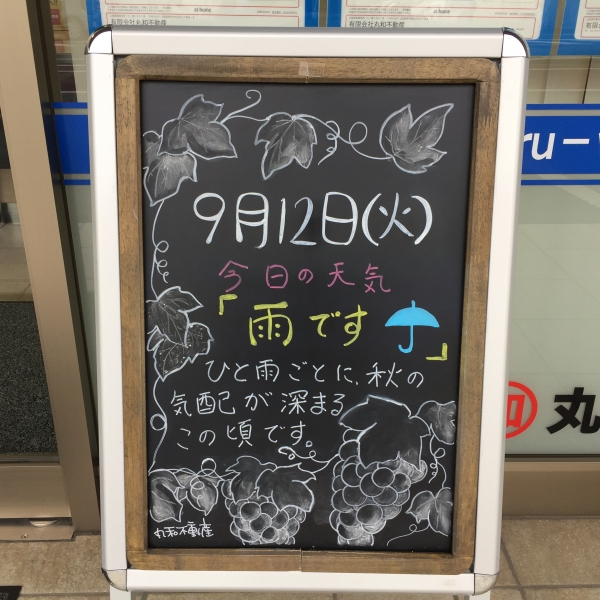 at home
有限会社丸和不動産
有限会社丸和不動産
9月12日(火)
今日の天気
「雨です」
ひと雨ごとに、秋の
気配が深まる
この頃です。
丸和不動産
ru-
和 丸